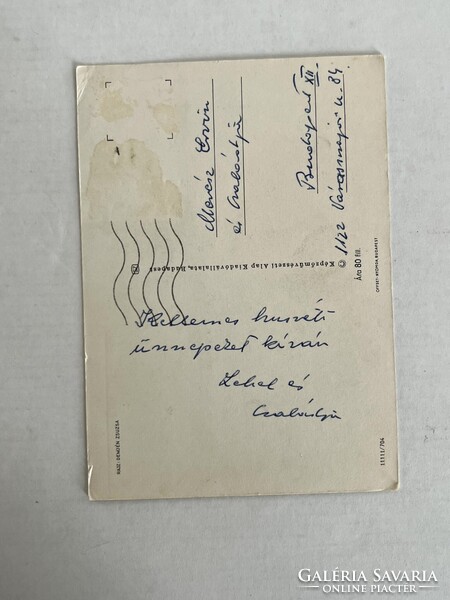 Kellemes husvéti
ünnepeket kíván
Lehel és
Családja
Ervin
és Családja
Budapest XII
1122 Városmajor u. 84
Képzőművészeti Alap Kiadóvállalata, Budapest
Ára 80 fill.
OFFSET-NYOMDA, BUDAPEST
RAJZ: DEMJÉN ZSUZSA
11111/704
GALÉRIA SAVARIA
ONLINE PIACTÉR